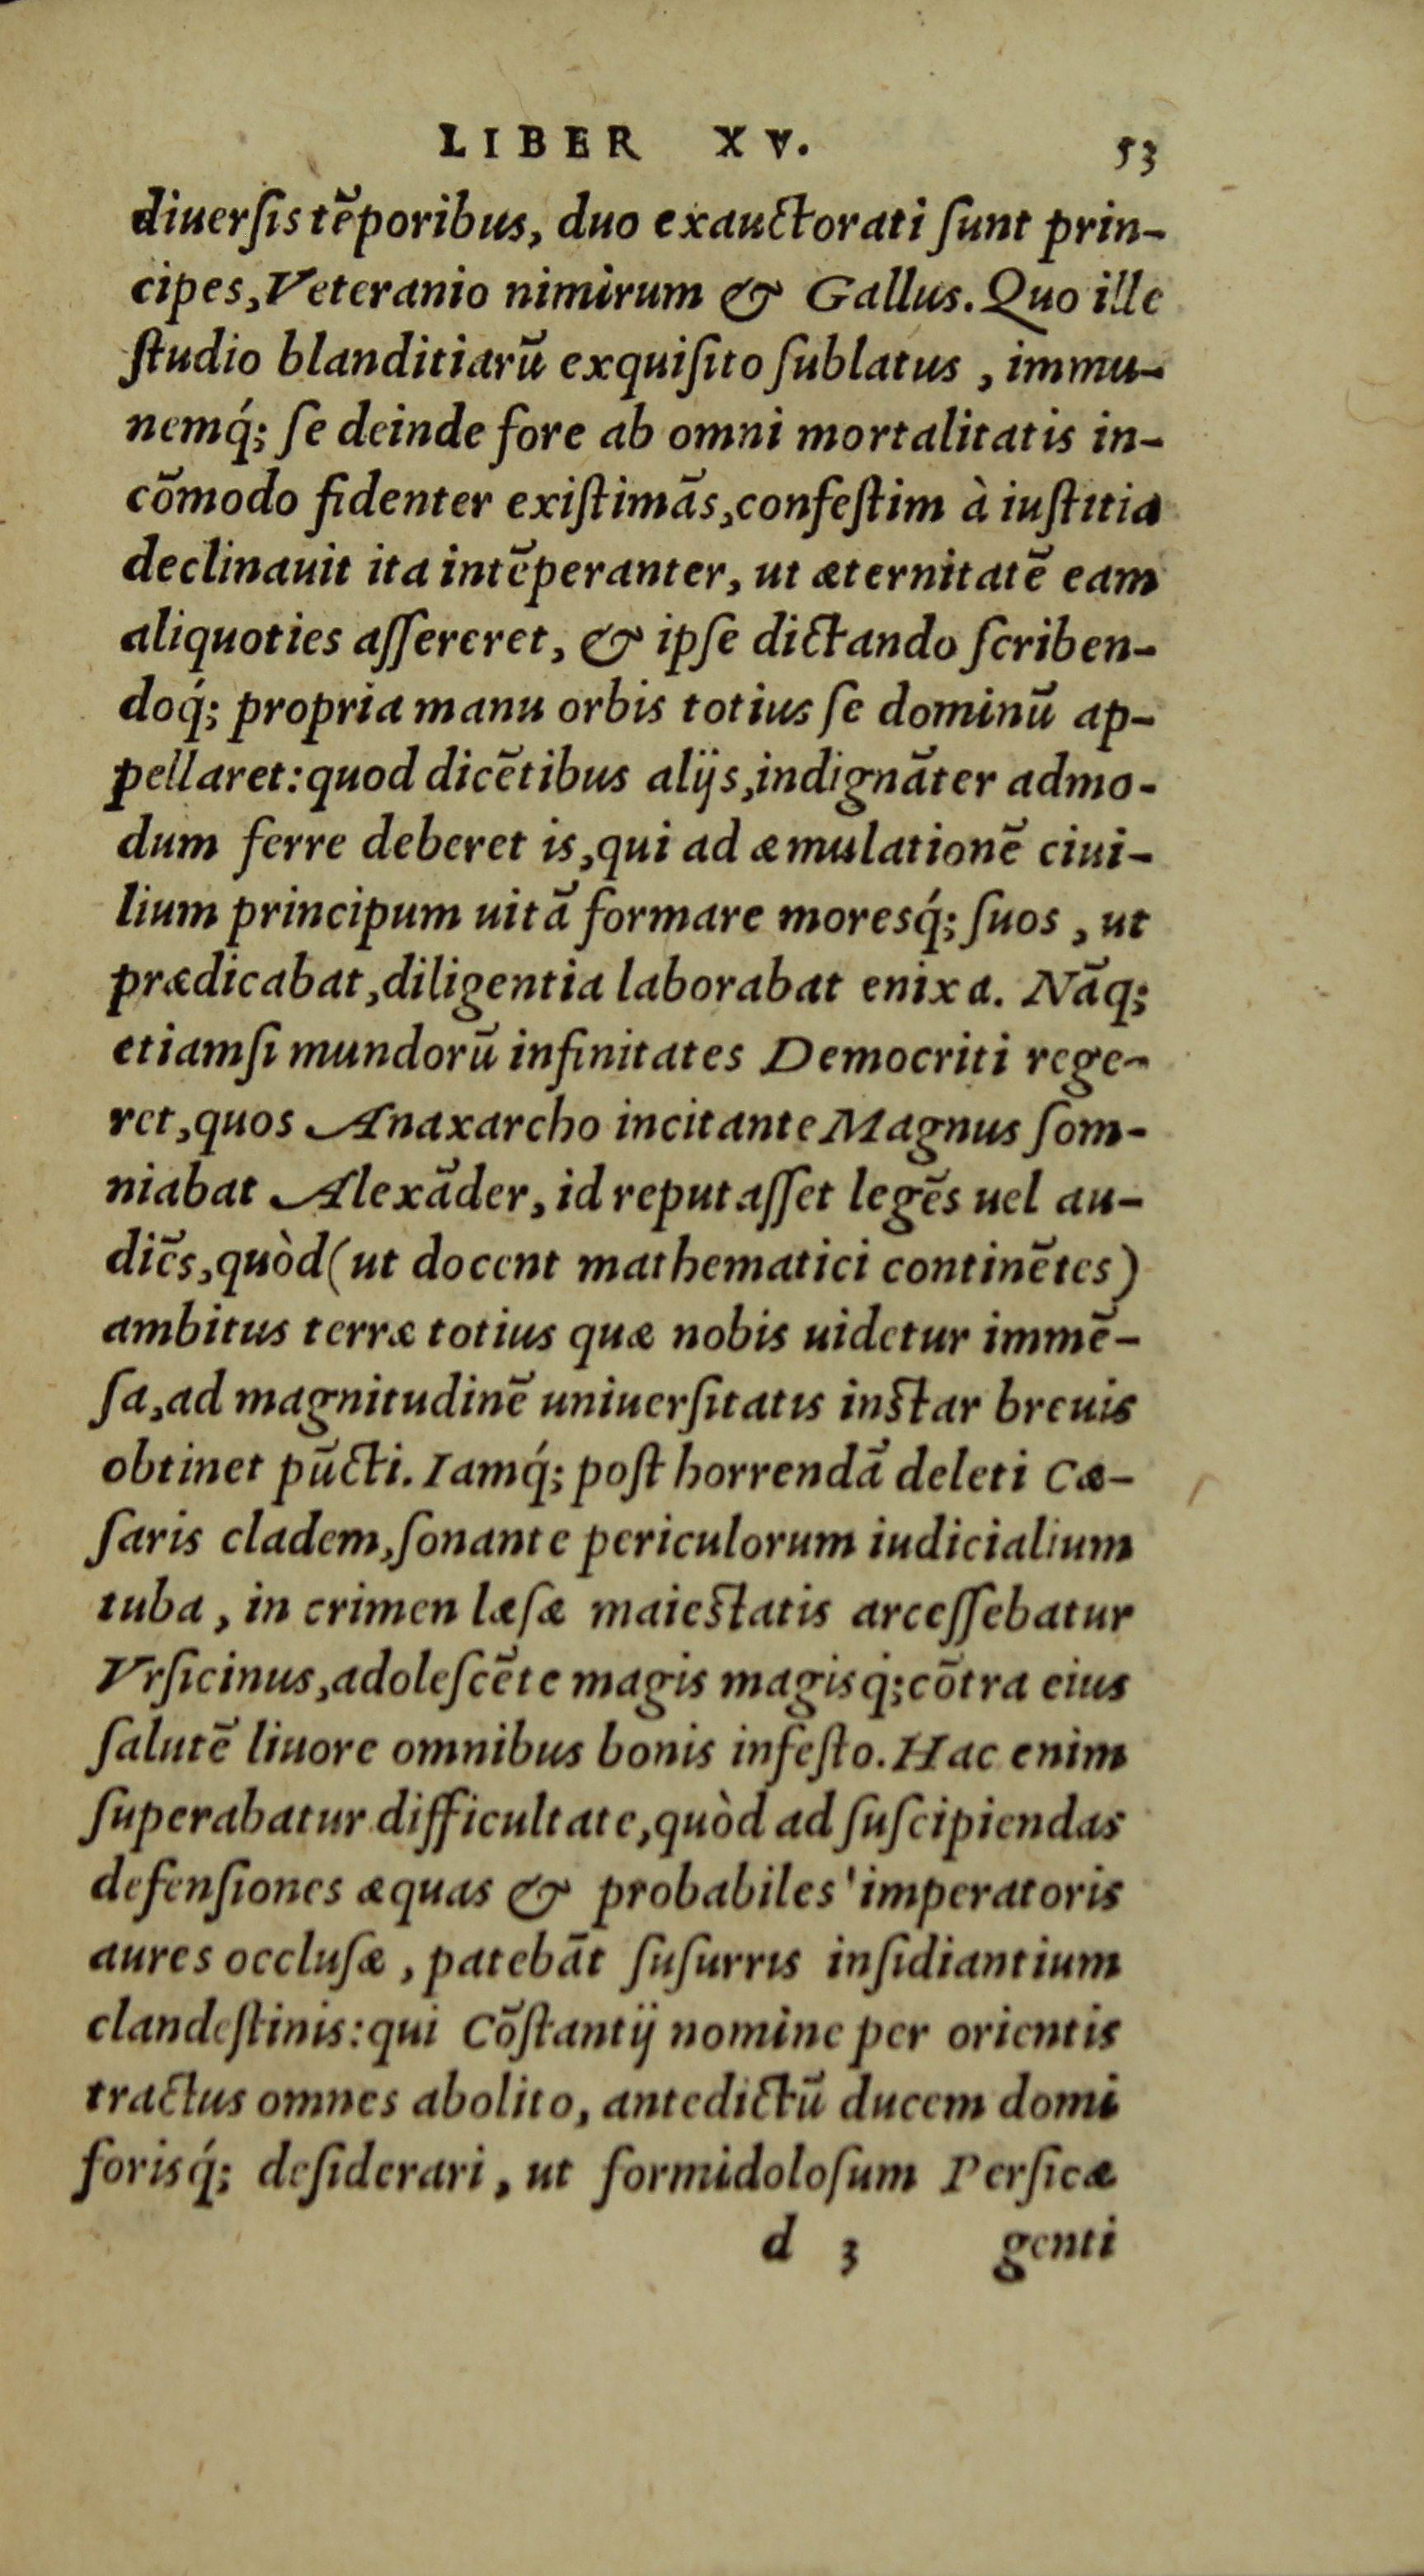 LIBER XV. 53
diuerſis tēporibus, duo exauctorati ſunt prin-
cipes, Veteranio nimirum & Gallus. Quo ille
ſtudio blanditiarū exquiſito ſublatus, immu-
nemq́; ſe deinde fore ab omni mortalitatis in-
cōmodo fidenter exiſtimās, confeſtim à iuſtitia
declinauit ita intēperanter, ut æternitatē eam
aliquoties aſſereret, & ipſe dictando ſcriben-
doq́; propria manu orbis totius ſe dominū ap-
pellaret: quod dicētibus alijs, indignāter admo-
dum ferre deberet is, qui ad æmulationē ciui-
lium principum uitā formare moresq́; ſuos, ut
prædicabat, diligentia laborabat enixa. Nāq;
etiamſi mundorū infinitates Democriti rege-
ret, quos Anaxarcho incitante Magnus ſom-
niabat Alexāder, id reputaſſet legēs uel au-
diēs, quòd (ut docent mathematici continētes)
ambitus terræ totius quæ nobis uidetur immē-
ſa, ad magnitudinē uniuerſitatis inſtar breuis
obtinet pūcti. Iamq́; poſt horrendā deleti Cæ-
ſaris cladem, ſonante periculorum iudicialium
tuba, in crimen læſæ maieſtatis arceſſebatur
Vrſicinus, adoleſcēte magis magisq́; cōtra eius
ſalutē liuore omnibus bonis infeſto. Hac enim
ſuperabatur difficultate, quòd ad ſuſcipiendas
defenſiones æquas & probabiles' imperatoris
aures occluſæ, patebāt ſuſurris inſidiantium
clandeſtinis: qui Cōſtantij nomine per orientis
tractus omnes abolito, antedictū ducem domi
forisq́; deſiderari, ut formidoloſum Perſicæ
d 3 genti